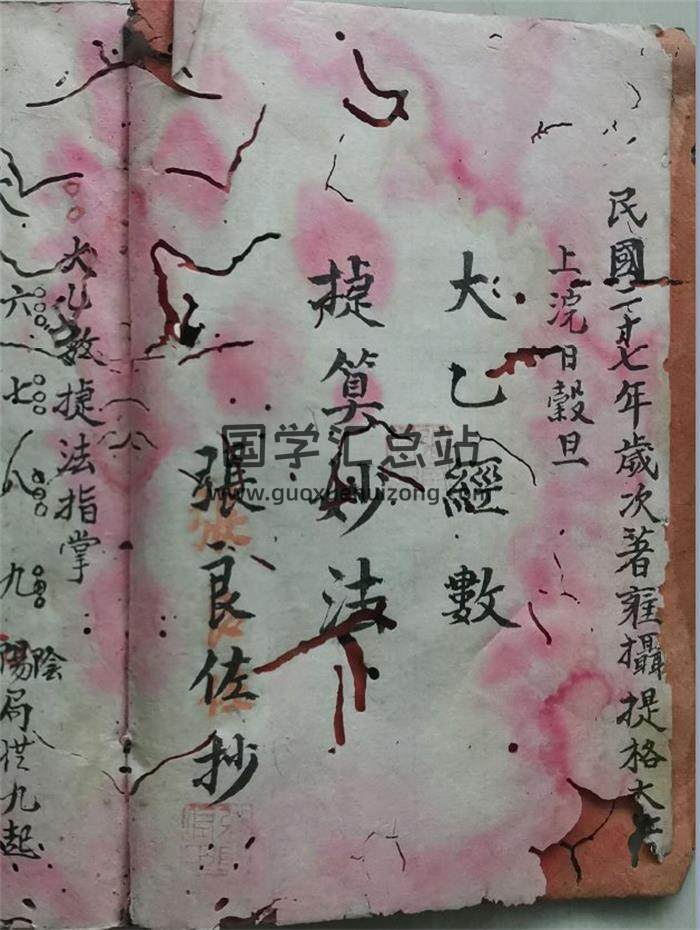 民國二十七年歲次著雍攝提格大
上浣日穀旦
大乙經數
捷算妙法
張良佐抄
大乙數捷法指掌
六七八九陰陽局九起
国学汇总站
www.guoxuehuizong.com